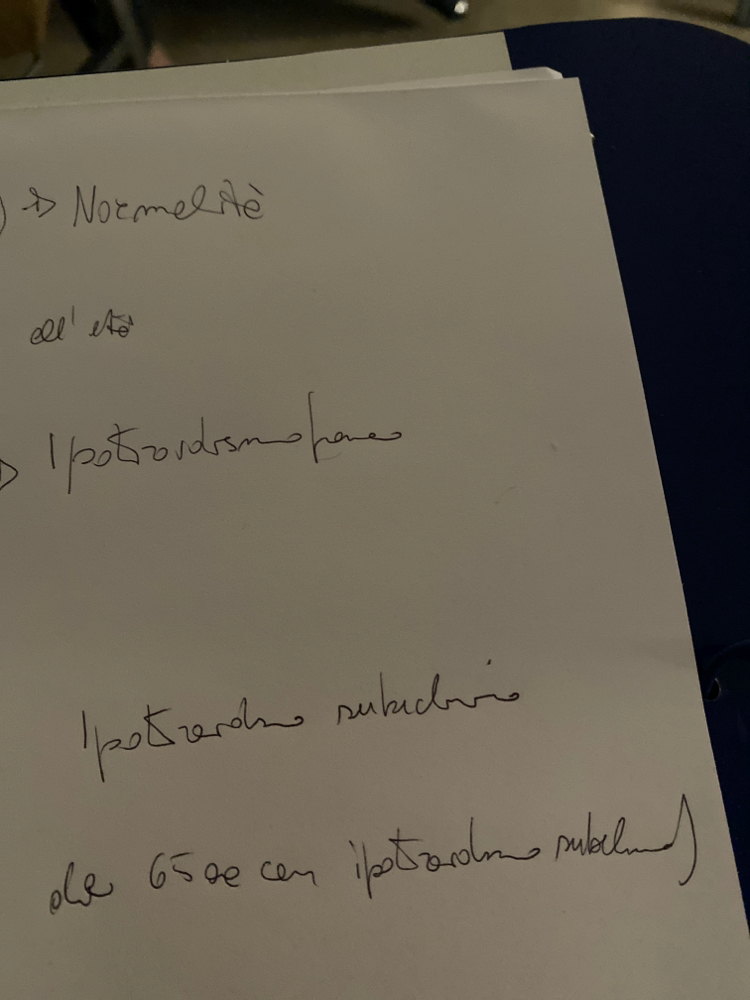 ) → Normalità
all'età
→ Ipotiroidismo franco
Ipotiroidismo subclinico
da 65 ae con ipotiroidismo subclinico)